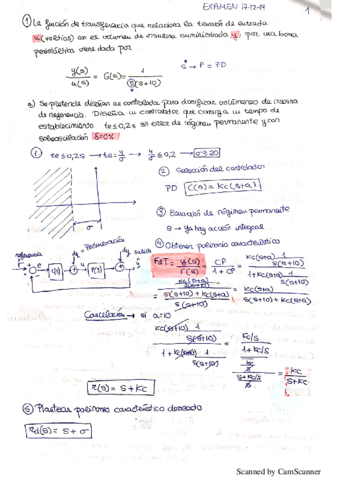 EXAMEN 17-12-14
1
① La función de transferencia que relaciona la tensión de entrada
u (voltios) con el volumen de insulina suministrada y, por una bomba
peristáltica viene dada por
y(s)/u(s) = G(s) = 1/(s(s+10))
S → P o PD
a) Se pretende diseñar un controlador para dosificar volúmenes de insulina
de referencia. Diseña un controlador que consiga un tiempo de
establecimiento te≤0,2s sin error de régimen permanente y sin
sobreoscilación δ=0%
① te≤0,2s → te=4/σ → 4/σ ≤0,2 → σ≥20
② Selección del controlador
PD C(s) = Kc(s+a)
σ
③ Ecuación de régimen permanente
S → Ya hay acción integral
④ Obtener polinomio característico
referencia
dy = Perturbación
dy salida
e C(s) u P(s) y
FdT = y(s)/r(s) = CP/(1+CP) = (Kc(s+a) 1/(s(s+10)))/(1+Kc(s+a) 1/(s(s+10)))
= (Kc(s+a)/(s(s+10)))/((s(s+10)+Kc(s+a))/(s(s+10))) = Kc(s+a)/(s(s+10)+Kc(s+a))
Cancelación → si a=10
(Kc(s+10) 1/(s(s+10)))/(1+Kc(s+10) 1/(s(s+10))) = (Kc/s)/(1+Kc/s)
= Kc/(s+Kc)
r(s) = s+Kc
⑤ Plantear polinomio característico deseado
rd(s) = s+σ
Scanned by CamScanner